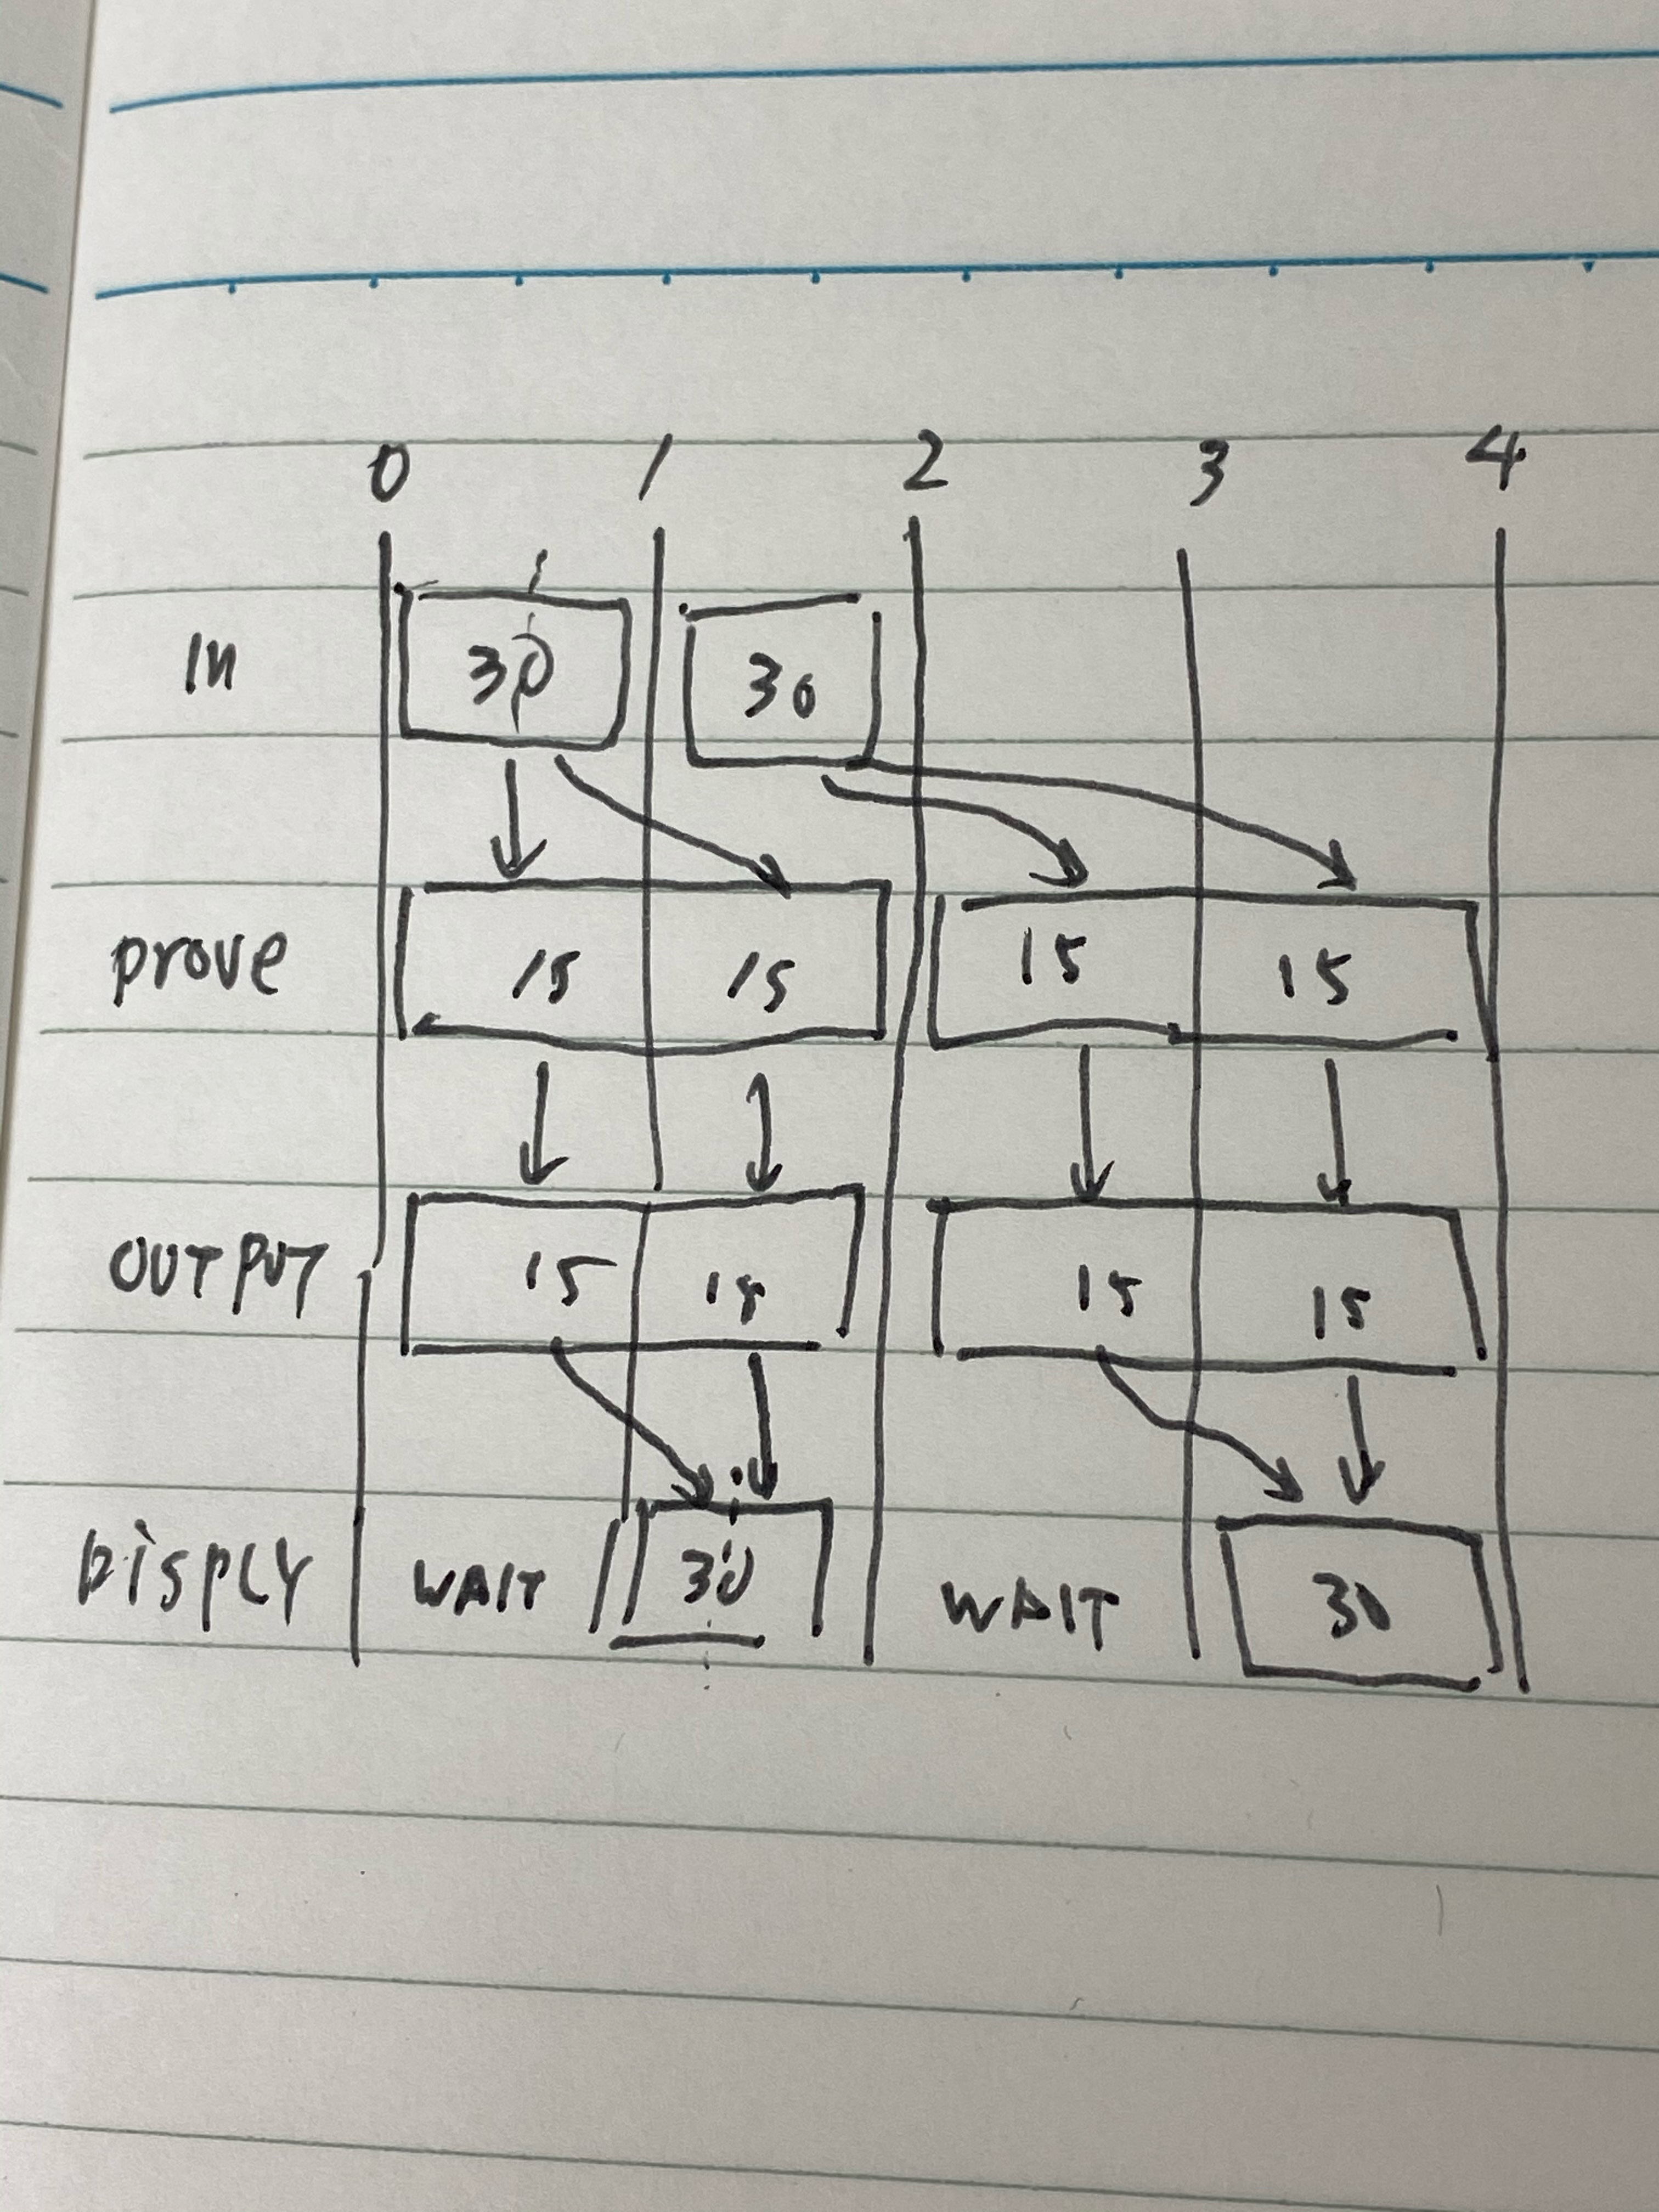 0 1 2 3 4
In 30 30
prove 15 15 15 15
OUTPUT 15 15 15 15
DisplY WAIT 30 WAIT 30